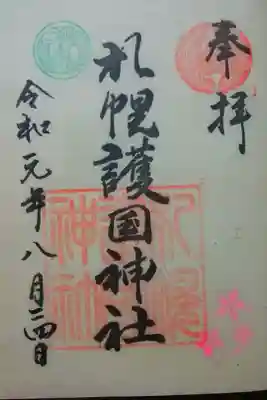 奉拝
札幌護国神社
令和元年八月二四日